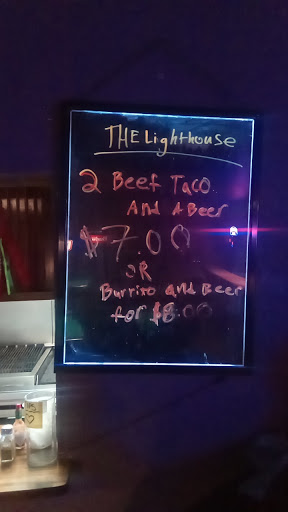 THE Lighthouse
2 Beef Taco
And A Beer
$7.00
OR
Burriso and Beer
for $8.00